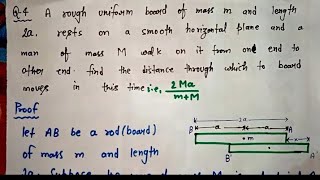 Q-4 A rough uniform board of mass m and length
2a. rests on a smooth horizontal plane and a
man of mass M walk on it from one end to
other end. find the distance through which to board
moves in this time i.e, 2Ma/m+M
Proof
let AB be a rod (board)
of mass m and length
2a
2a
B a a A
m x
B'